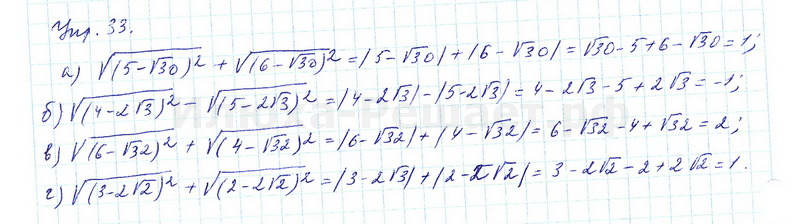 Упр. 33.
а) √(5-√30)² + √(6-√30)² = |5-√30| + |6-√30| = √30-5+6-√30 = 1;
б) √(4-2√3)² - √(5-2√3)² = |4-2√3| - |5-2√3| = 4-2√3-5+2√3 = -1;
в) √(6-√32)² + √(4-√32)² = |6-√32| + |4-√32| = 6-√32-4+√32 = 2;
г) √(3-2√2)² + √(2-2√2)² = |3-2√3| + |2-2√2| = 3-2√2-2+2√2 = 1.